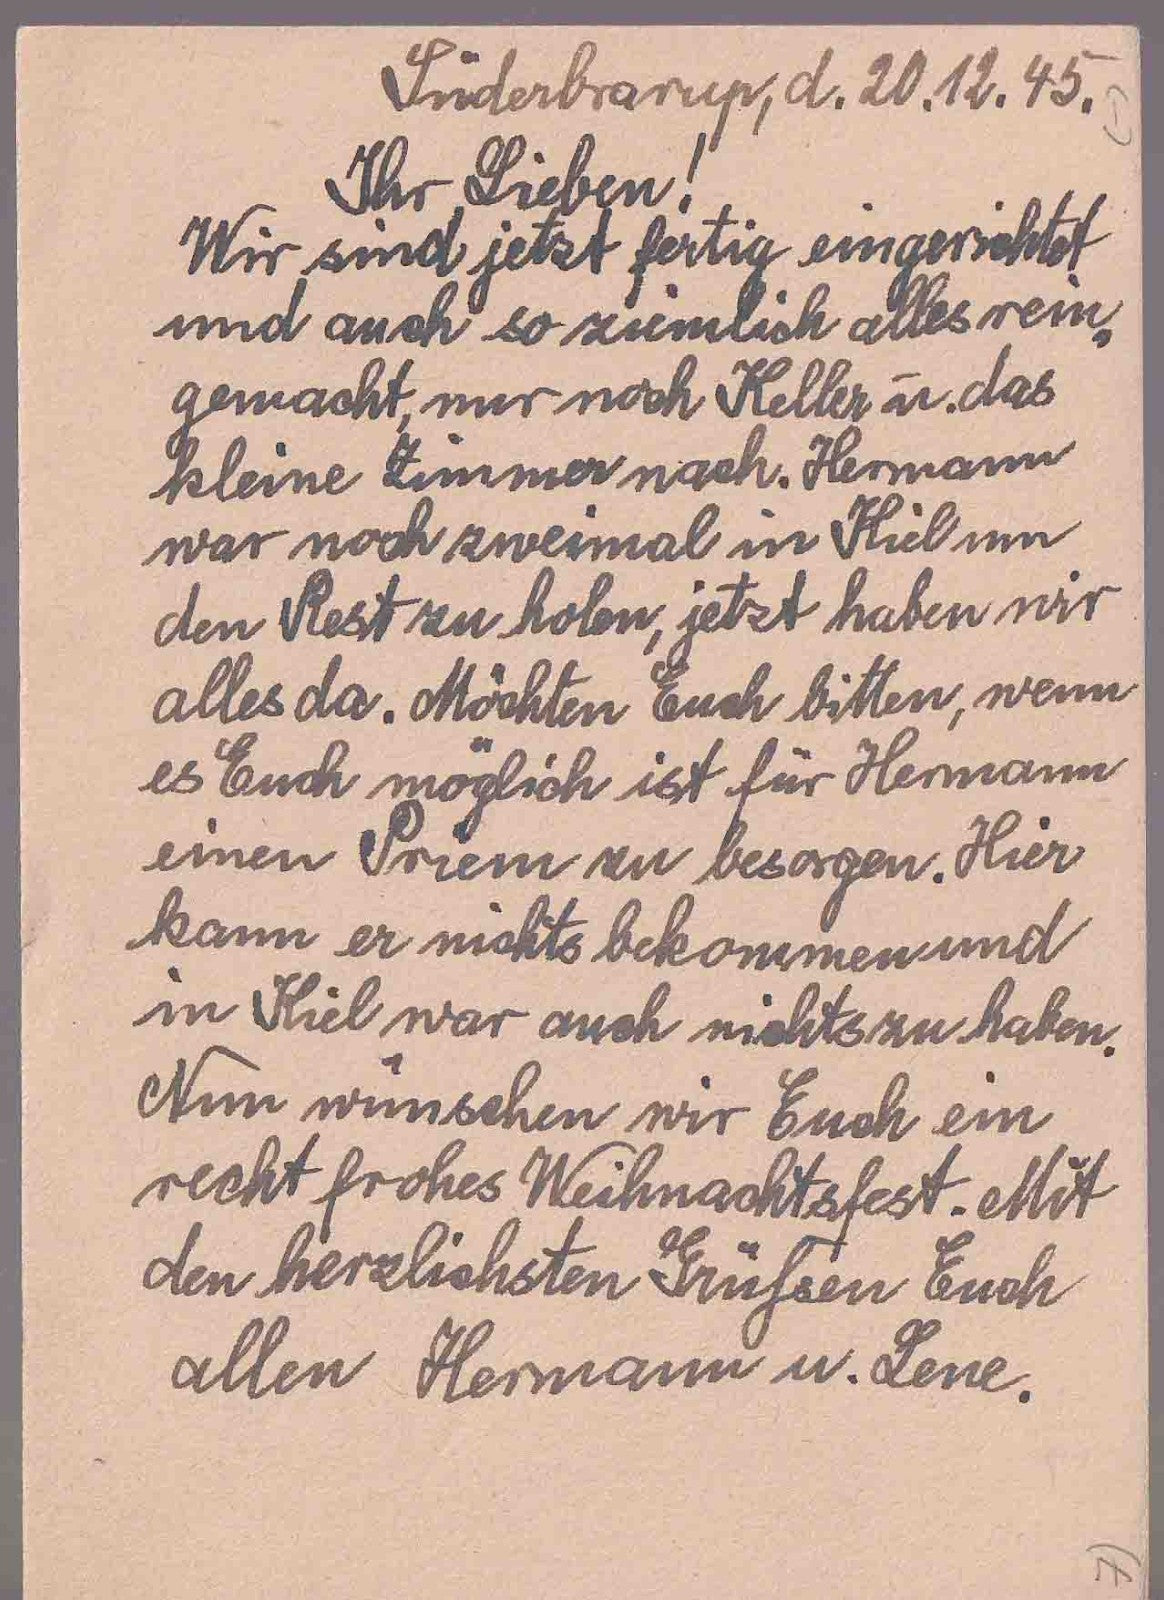 Süderbrarup, d. 20.12.45.
Ihr Lieben!
Wir sind jetzt fertig eingerichtet
und auch so ziemlich alles rein,
gemacht, nur noch Keller u. das
kleine Zimmer nach. Hermann
war noch zweimal in Kiel um
den Rest zu holen, jetzt haben wir
alles da. Möchten Euch bitten, wenn
es Euch möglich ist für Hermann
einen Priem zu besorgen. Hier
kann er nichts bekommen und
in Kiel war auch nichts zu haben.
Nun wünschen wir Euch ein
recht frohes Weihnachtsfest. Mit
den herzlichsten Grüßen Euch
allen Hermann u. Lene.